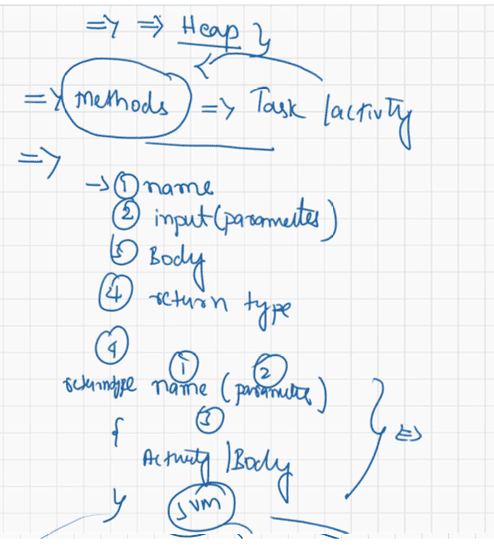 => => Heap }
=> methods => Task /activity
=>
-> ① name
② input(parameters)
③ Body
④ return type
④ ① ②
returntype name (parameters)
{ ③ } =>
Activity /Body
}
JVM